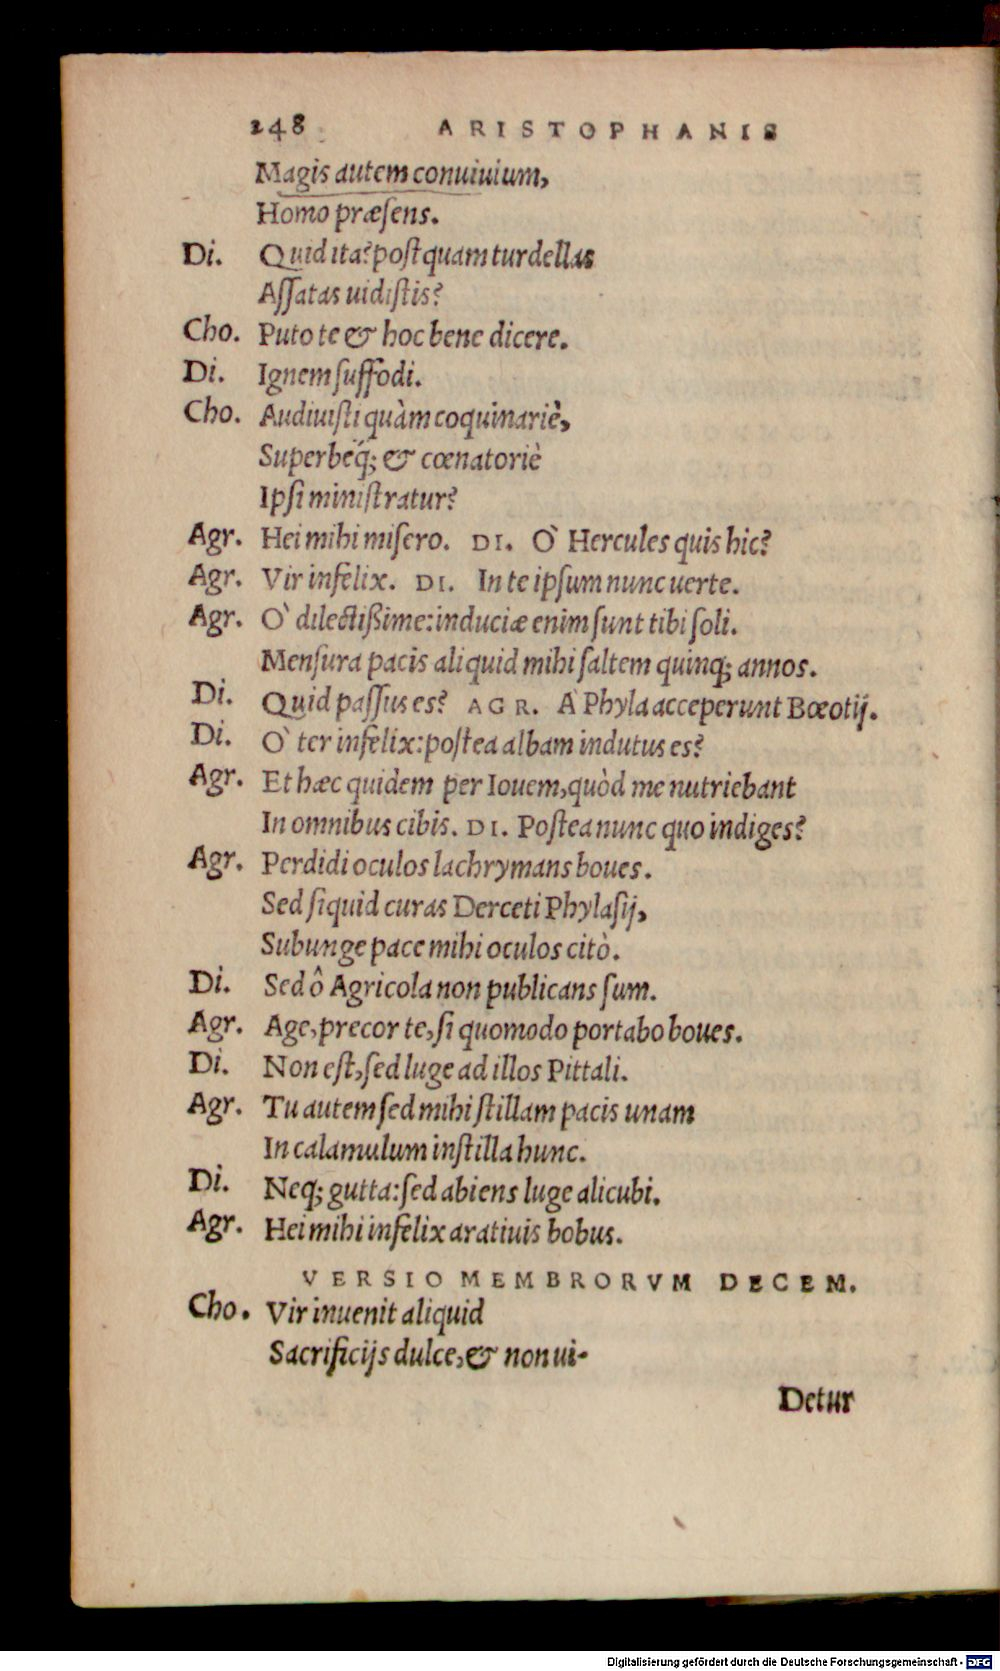 248 ARISTOPHANIS
Magis autem conuiuium,
Homo præsens.
Di. Quid ita? postquam turdellas
Assatas uidistis?
Cho. Puto te & hoc bene dicere.
Di. Ignem suffodi.
Cho. Audiuisti quàm coquinariè,
Superbéq; & cœnatoriè
Ipsi ministratur?
Agr. Hei mihi misero. DI. Ò Hercules quis hic?
Agr. Vir infelix. DI. In te ipsum nunc uerte.
Agr. Ò dilectißime: induciæ enim sunt tibi soli.
Mensura pacis aliquid mihi saltem quinq; annos.
Di. Quid passus es? AGR. À Phyla acceperunt Bœotij.
Di. Ò ter infelix: postea albam indutus es?
Agr. Et hæc quidem per Iouem, quòd me nutriebant
In omnibus cibis. DI. Postea nunc quo indiges?
Agr. Perdidi oculos lachrymans boues.
Sed siquid curas Derceti Phylasij,
Subunge pace mihi oculos citò.
Di. Sed ô Agricola non publicans sum.
Agr. Age, precor te, si quomodo portabo boues.
Di. Non est, sed luge ad illos Pittali.
Agr. Tu autem sed mihi stillam pacis unam
In calamulum instilla hunc.
Di. Neq; gutta: sed abiens luge alicubi.
Agr. Hei mihi infelix aratiuis bobus.
VERSIO MEMBRORVM DECEM.
Cho. Vir inuenit aliquid
Sacrificijs dulce, & non ui-
Detur
Digitalisierung gefördert durch die Deutsche Forschungsgemeinschaft - DFG